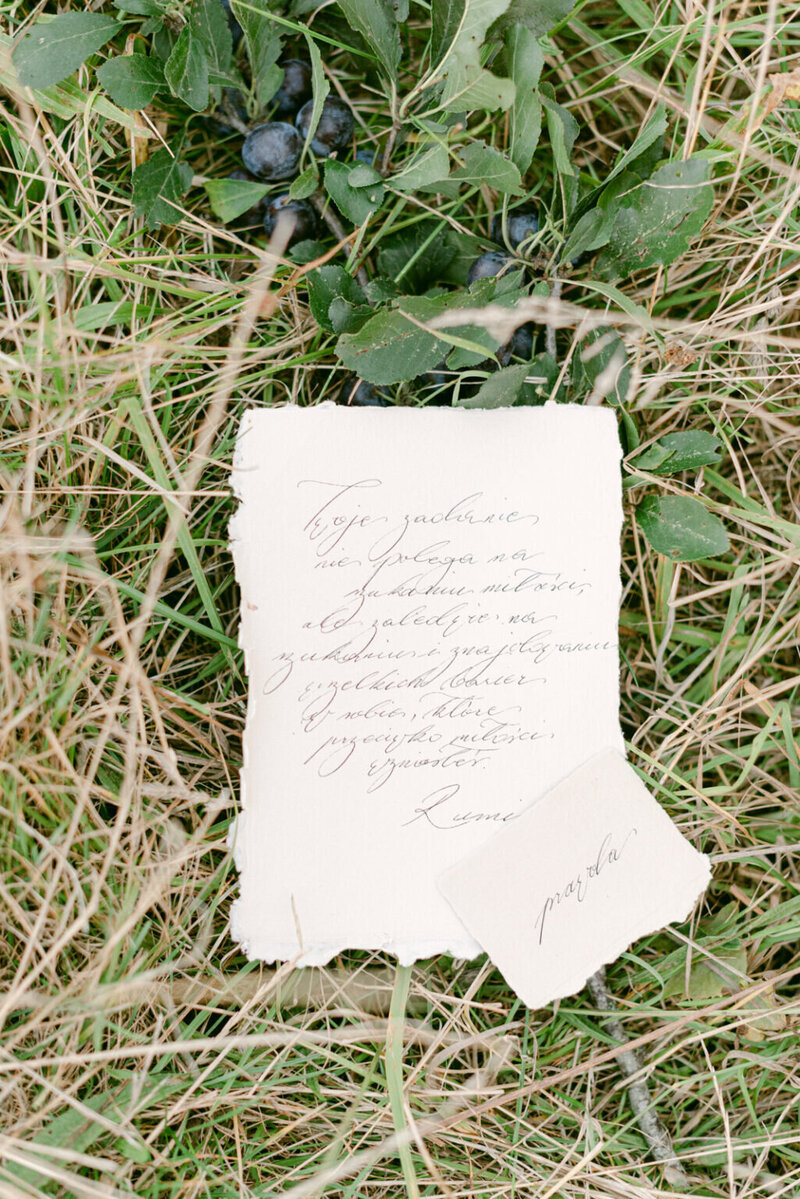 Twoje zadanie
nie polega na
szukaniu miłości,
ale zaledwie na
szukaniu i znajdowaniu
wszelkich barier
w sobie, które
przeciwko miłości
wzniosłeś.
Rumi
prawda